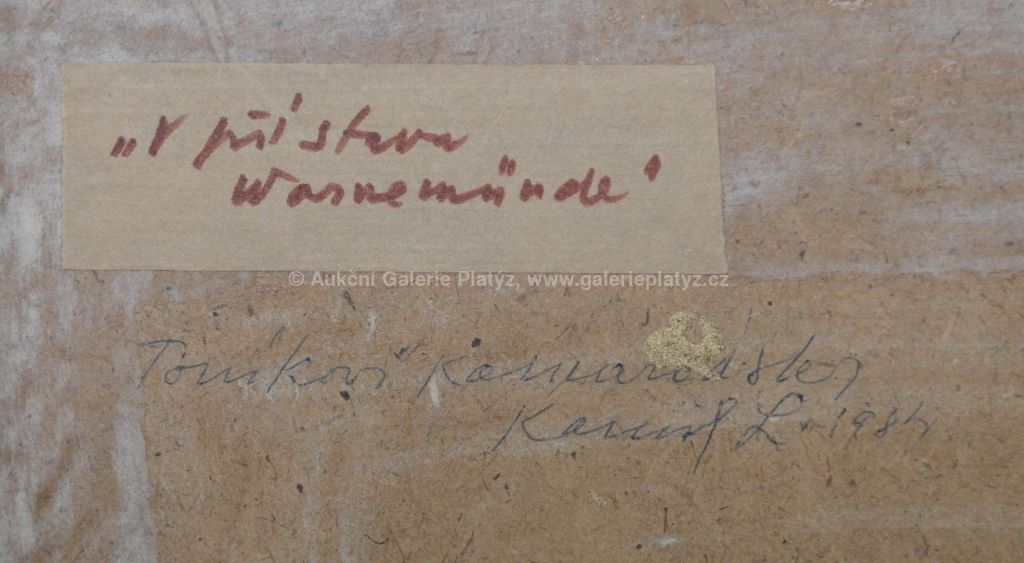 „V přístavu
Warnemünde“
© Aukční Galerie Platýz, www.galerieplatyz.cz
Toníkovi kamarádsky
Kamil L. 1984